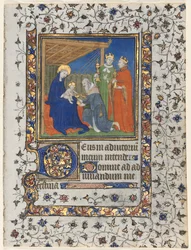 Deus in adiutoriu
meum intende
Domine ad ad
iuuandum me
festina